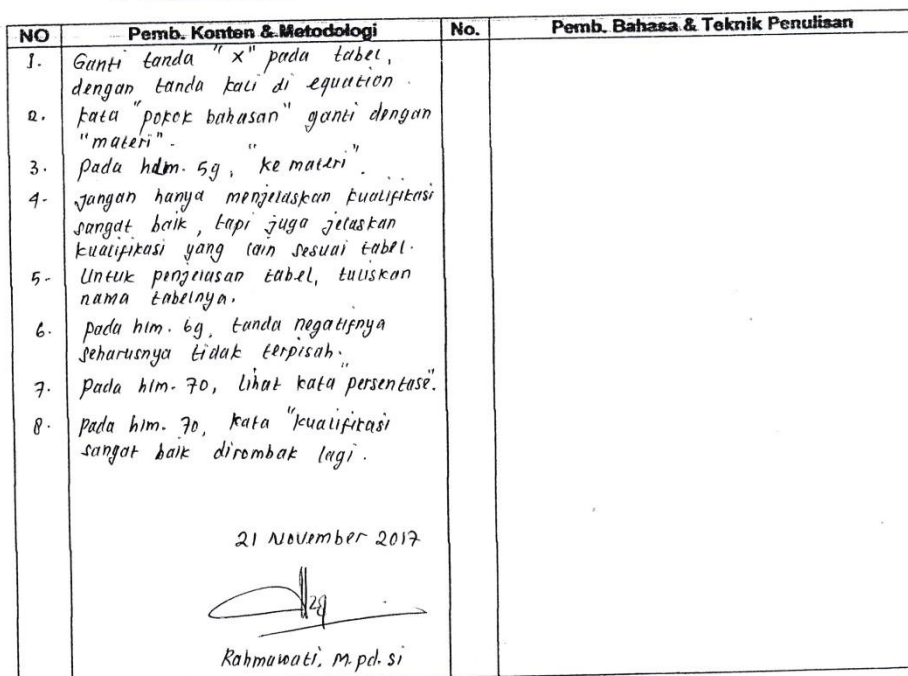 NO Pemb. Konten & Metodologi No. Pemb. Bahasa & Teknik Penulisan
1. Ganti tanda "x" pada tabel,
dengan tanda kali di equation.
2. kata "pokok bahasan" ganti dengan
"materi".
3. Pada hlm. 59, "ke materi".
4. Jangan hanya menjelaskan kualifikasi
sangat baik, tapi juga jelaskan
kualifikasi yang lain sesuai tabel.
5. Untuk penjelasan tabel, tuliskan
nama tabelnya.
6. Pada hlm. 69, tanda negatifnya
seharusnya tidak terpisah.
7. Pada hlm. 70, lihat kata "persentase".
8. Pada hlm. 70, kata "kualifikasi
sangat baik dirombak lagi.
21 November 2017
Rahmawati, M.pd.si